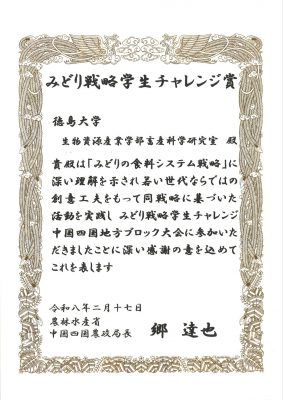 みどり戦略学生チャレンジ賞
徳島大学
生物資源産業学部畜産科学研究室 殿
貴殿は「みどりの食料システム戦略」に
深い理解を示され若い世代ならではの
創意工夫をもって同戦略に基づいた
活動を実践し みどり戦略学生チャレンジ
中国四国地方ブロック大会に参加いた
だきましたことに深い感謝の意を込めて
これを表します
令和八年二月十七日
農林水産省
中国四国農政局長 郷 達也